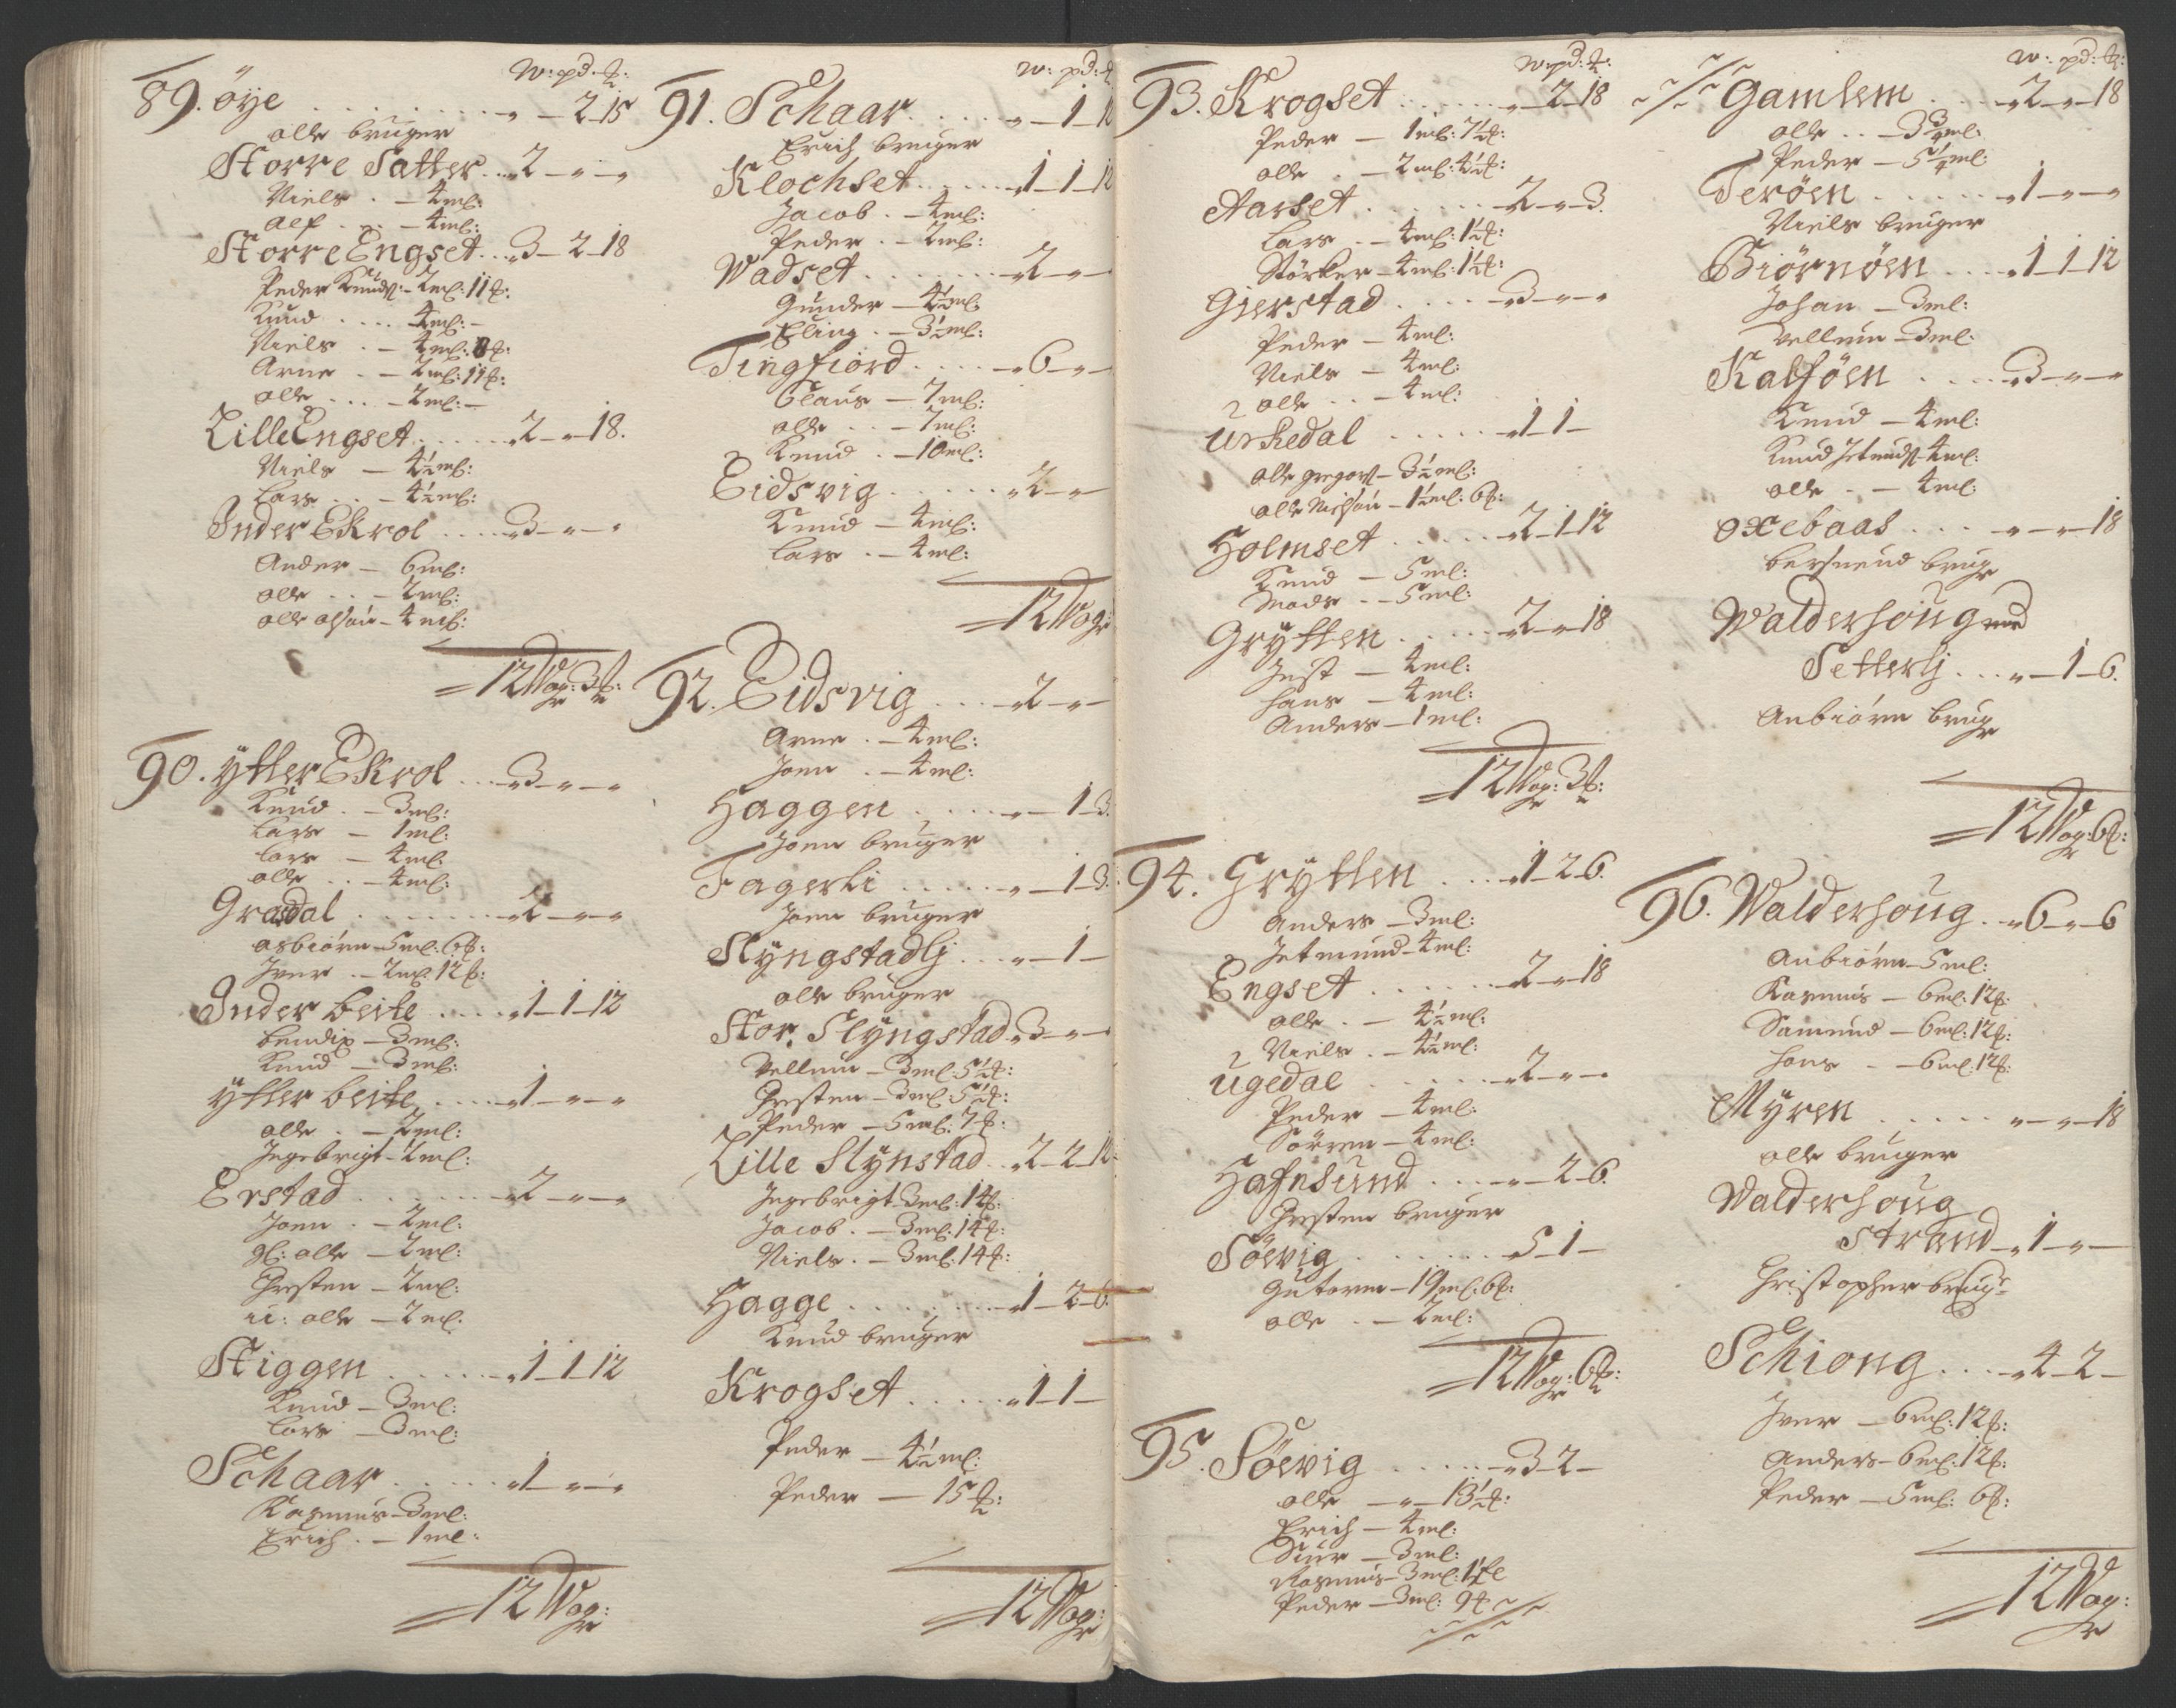 w: pd: ꝉ:
89. öye . . . . . „ — 2 15
olle bruger
Storre Sætter . . „ 2 — „ — „
Niels . — 4 ml:
Alf . . — 4 ml:
Storre Engset . . „ 3 — 2 — 18
Peder Knuds: — 2 ml: 11 ꝉ:
Knud . . . . 4 ml: —
Niels . — 4 ml: 8 ꝉ:
Arne . — 2 ml: 11 ꝉ:
olle . . . — 2 ml: —
Lille Engset . . . . „ 2 — „ 18.
Niels — 4½ ml:
Lars . . — 4½ ml:
Inder Ekrol . . . . „ 3 — „ — „
Ander — 6 ml:
olle . . — 2 ml:
olle olsøn — 4 ml:
= 12 Wog: 3 ꝉ:
90. ÿtter Ekrol . . . „ 3 — „ — „
Knud . — 3 ml:
Lars — 1 ml:
Lars — 4 ml:
olle . . — 4 ml:
Grasdal . . . . . . . „ 2 — „ — „
asbiörn — 5 ml: 6 ꝉ:
Iver . — 2 ml: 12 ꝉ:
Inder beite . . . . „ 1 — 1 — 12
bendix — 3 ml:
Knud — 3 ml:
ÿtter beite . . . . „ 1 — „ — „
olle . — 2 ml:
Ingebrigt — 4 ml:
Erstad . . . . . . „ 2 — „ — „
Joen . — 2 ml:
gl: olle — 2 ml:
Chresten — 2 ml:
u: olle — 2 ml:
Stiggen . . . . . „ 1 — 1 12
Knud — 3 ml:
Lars — 3 ml:
Schaar . . . . . „ 1 — „ — „
Rasmus — 3 ml:
Erich . — 1 ml:
= 12 Wog:
w: pd: ꝉ
91. Schaar . . . . „ — 1 — 12
Erich bruger
Klochset . . . . „ 1 — 1 — 12
Jacob . — 4 ml:
Peder . — 2 ml:
Wadset . . . . . . . „ 2 — „ —
Gunder — 4½ ml
Eling . — 3½ ml:
Tingfiord . . . . „ 6 — „ —
Claus — 7 ml:
olle . . — 7 ml:
Knud . — 10 ml:
Eidsvig . . . . . . „ 2 — „ —
Knud — 4 ml:
Lars . — 4 ml:
= 12 Wog:
92. Eidsvig . . . „ 2 — „ —
Arne . — 4 ml:
Joen . — 4 ml:
Haggen . . . . . „ — 1 — 3.
Joen bruger
Fagerli . . . . . „ — 1 — 3.
Joen bruger
Slÿngstadlj . . . „ — 1 —
olle bruger
Stor. Slÿngstad „ 3 — „ —
Vellum — 3 ml: 5½ ꝉ:
Chresten — 3 ml: 5½ ꝉ:
Peder — 5 ml: 7 ꝉ:
Lille Slÿnstad . . „ 2 — 2 — 12
Ingebrigt — 3 ml: 14 ꝉ:
Jacob . — 3 ml: 14 ꝉ:
Niels . — 3 ml: 14 ꝉ:
Hagge . . . . . . . „ 1 — 2 — 6.
Knud bruger
Krogset . . . . . „ 1 1 —
Peder — 4½ ml:
Peder — 15 ꝉ:
= 12 Wog:
w: pd: ꝉ:
93. Krogset . . . . . „ 2 — 18
Peder — 1 ml: 7½ ꝉ:
olle . — 2 ml: 4½ ꝉ:
Aarset . . . . . . „ 2 — „ — 3.
Lars . — 4 ml: 1½ ꝉ:
Störker — 4 ml: 1½ ꝉ:
Gierstad . . . . „ 3 — „ — „
Peder — 4 ml:
Niels — 4 ml:
olle . . — 4 ml:
Urkedal . . . . . „ 1 1 —
olle gregors — 3½ ml:
olle Nielsøn — 1½ ml: 6 ꝉ:
Holmset . . . . . „ 2 — 1 — 12
Knud — 5 ml:
Mads . — 5 ml:
Grÿtten . . . . . „ 2 — „ 18
Jest — 4 ml:
hans — 4 ml:
Anders — 1 ml:
= 12 Wog: 3 ꝉ:
94. Grÿtten . . . „ 1 — 2 — 6.
Anders — 3 ml:
Jetmund — 4 ml:
Engset . . . . . . „ 2 — „ 18
olle . — 4½ ml:
Niels . — 4½ ml:
Ugedal . . . . . . „ 2 — „ — „
Peder — 4 ml:
Sörren — 4 ml:
Hafnsund . . . . „ — 2 — 6.
Chresten bruger
Söevig . . . . . . . 5 — 1 —
Gutorm — 19 ml: 6 ꝉ:
olle . — 2 ml:
= 12 Wog: 6 ꝉ:
95. Söevig . . . . . „ 3 — 2 —
olle — „ — 13½ ꝉ:
Erich — 4 ml:
Siur — 3 ml:
Rasmus — 3 ml: 1½ ꝉ
Peder — 3 ml: 9 ꝉ
w: pd: ꝉ:
Gamlem . . . . „ 2 — „ 18
olle . . — 3¾ ml:
Peder — 5¼ ml:
Teröen . . . . . . „ 1 — „ — „
Niels bruger
Biörnöen . . . . „ 1 — 1 — 12
Johan — 3 ml:
Vellum — 3 ml:
Kalföen . . . . „ 3 — „ — „
Knud — 4 ml:
Knud Jetmunds — 4 ml:
olle . — 4 ml:
oxebaas . . . „ — „ — 18
bersuend brug
Walderhöug med
Setterlj . . . „ — 1 — 6.
Anbiörn brug
= 12 Wog: 6 ꝉ:
96. Walderhoug . „ 6 — „ — 6
Anbiörn — 5 ml:
Rasmus — 6 ml: 12 ꝉ:
Samund — 6 ml: 12 ꝉ:
hans . — 6 ml: 12 ꝉ:
Mÿren . . . . . „ — „ — 18
olle bruger
Walderhoug
Strand „ 1 — „ —
Christopher brug
Schiong . . . „ 4 — 2 —
Iver — 6 ml: 12 ꝉ:
Anders — 6 ml: 12 ꝉ:
Peder — 5 ml: 6 ꝉ:
= 12 Wog: